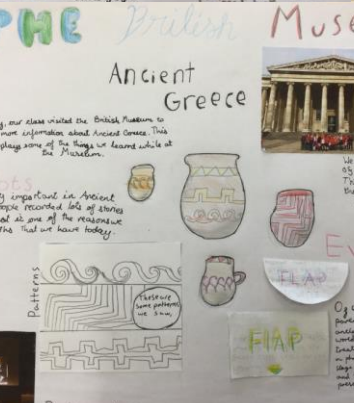 THE British Muse
Ancient
Greece
, our class visited the British Museum to
more information about Ancient Greece. This
plays some of the things we learnt while at
the Museum.
ots
y important in Ancient
ople recorded lots of stories
ot is one of the reasons we
ths that we have today.
We
Th
the
E
Patterns
These are
some patterns
we saw,
FLAP
FLAP